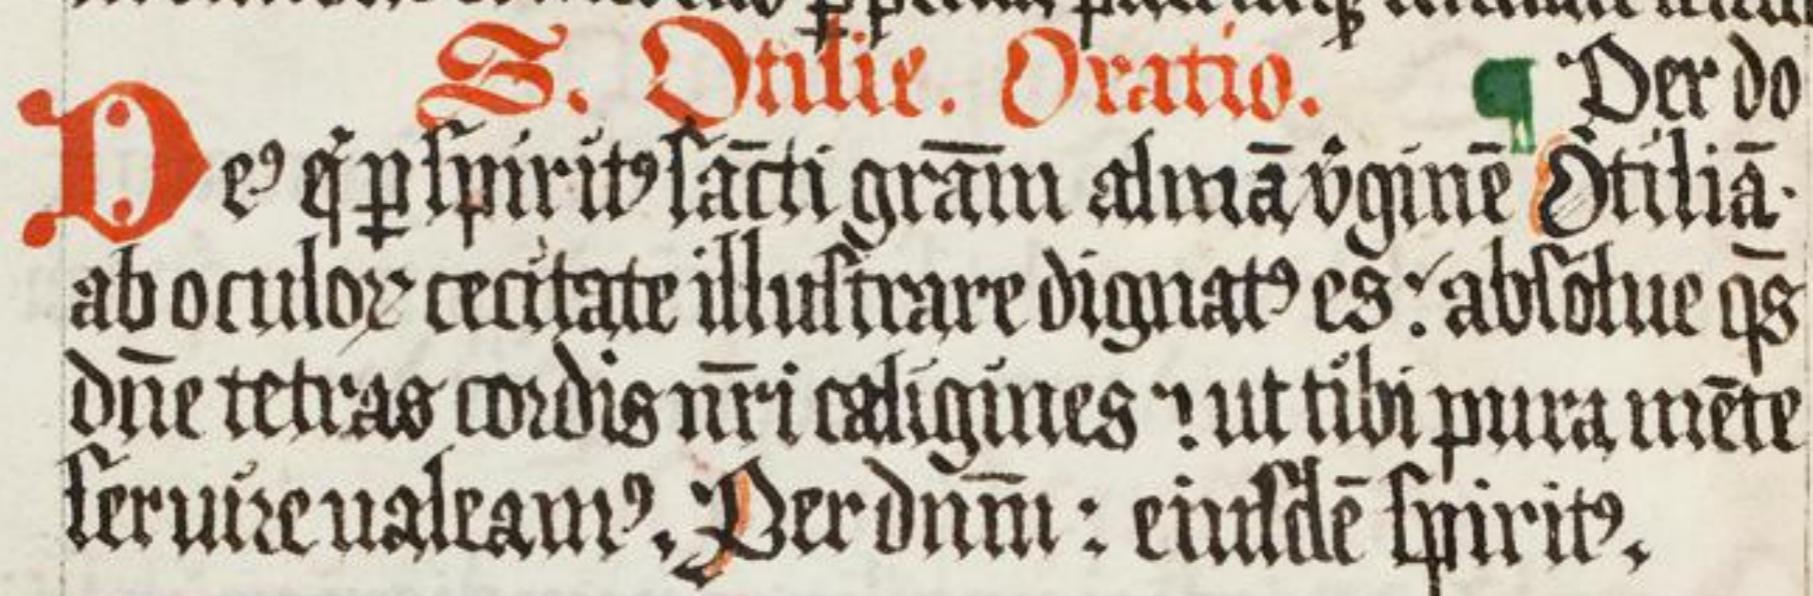 S. Otilie. Oratio. ¶ Per do
Deꝰ q̄ ꝑ ſpiritꝰ ſācti grām almā v̊ginē Otiliā.
ab oculoꝝ cecitate illuſtrare dignatꝰ es: abſolue q̄s
dn̄e tetras cordis nr̄i caligines ⁊ ut tibi pura mēte
ſeruire ualeamꝰ. Per dnm̄: eiuſdē ſpiritꝰ.